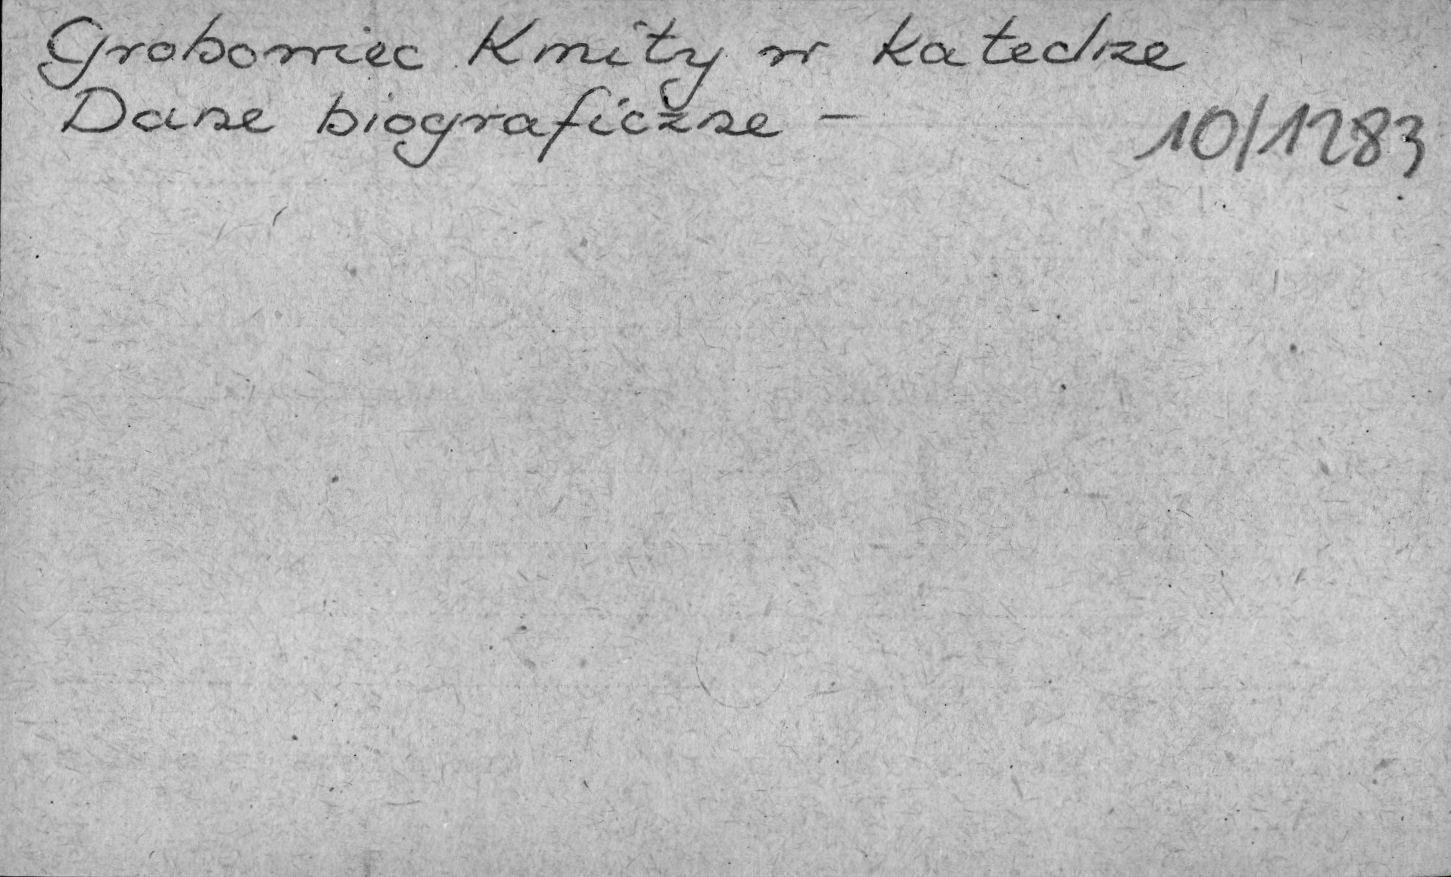 Grobowiec Kmity w katedrze
Dane biograficzne – 10/1283